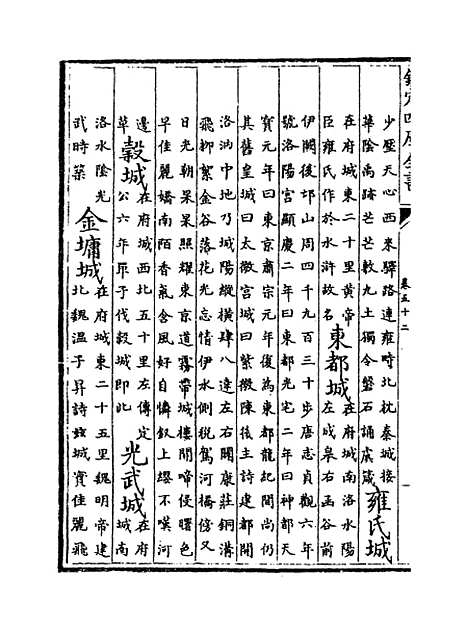 欽定四庫全書
卷五十二
少壓天心西來驛路連雍畤北枕秦城接
華陰禹跡芒芒敷九土獨令盤石誦虞箴
雍氏城
在府城東二十里黃帝
臣雍氏作於水滸故名
東都城
在府城南洛水陽
左成皋右函谷前
伊闕後邙山周四千九百三十步唐志貞觀六年
號洛陽宫顯慶二年曰東都光宅二年曰神都天
寶元年曰東京肅宗元年復為東都龍起間尚仍
其舊皇城曰太微宫城曰紫微陳後主詩建都開
洛汭中地乃城陽縱橫肆八達左右闢康莊銅溝
飛柳絮金谷落花光忘情伊水側稅駕河橋傍又
日光朝杲杲照耀東京道霧帶城樓開啼侵曙色
早佳麗嬌南陌香氣含風好自憐釵上纓不嘆河
邊
草
榖城
在府城西北五十里左傳定
公六年單于伐榖城即此
光武城
在府
城南
洛水陰光
武時築
金墉城
在府城東二十五里魏明帝建
北魏温子昇詩兹城實佳麗飛